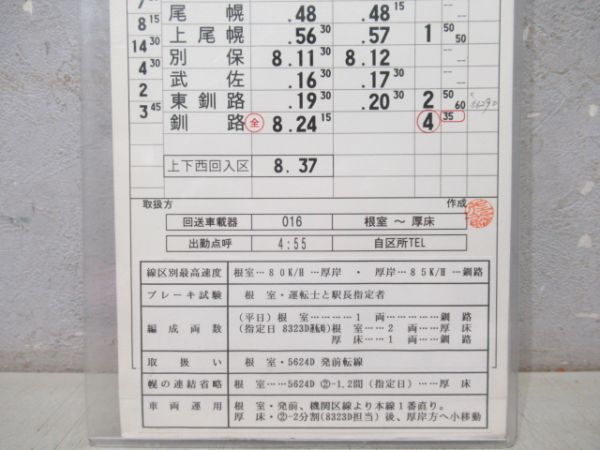 7
尾幌 .48 .48 15 --
8 15 上尾幌 .56 30 .57 1 50 50
14 30 別保 8.11 30 8.12 --
4 30 武佐 .16 30 .17 30 --
2 東釧路 .19 30 .20 30 2 50 60
3 45 釧路 全 8.24 15 4 35
上下西回入区 8.37
取扱方 作成
回送車載器 016 根室 ～ 厚床
出勤点呼 4:55 自区所TEL
線区別最高速度 根室…80K/H…厚岸・厚岸…85K/H…釧路
ブレーキ試験 根 室・運転士と駅長指定者
編成両数 (平日) 根 室…………1 両…………釧 路
(指定日 8323D運転) 根 室…2 両…厚 床
厚 床…1 両…釧 路
取扱い 根 室・5624D 発前転線
幌の連結省略 根 室……5624D ②-1.2間 (指定日)……厚 床
車両運用 根 室・発前、機関区線より本線１番直り。
厚 床・②-2分割(8323D担当) 後、厚岸方へ小移動